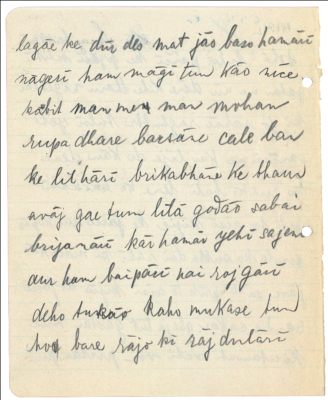 lagāe ke dūr deo mat jāo baso hamārī
nagerī ham māgī tum kāo nīce.
kabit man men man mohan
rupa dhare barsāne cale ban
ke lilhārī brikabhāne ke bhaun
avāj gae tum lilā godāo sabai
brijanārī kār hamār yehī sajenī
aur ham baipārī hai rojgārī
deho tukāo kaho mukase tum
ho bare rājo kī rāj dulārī